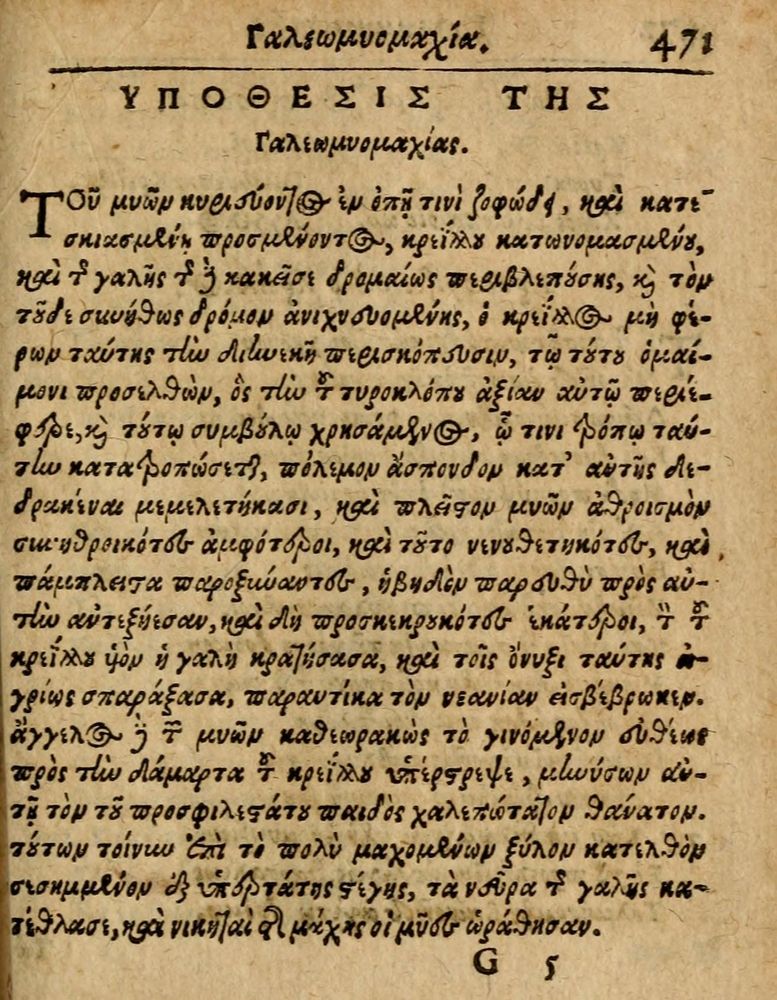 Γαλεωμυομαχία. 471
ΥΠΟΘΕΣΙΣ ΤΗΣ
Γαλεωμυομαχίας.
Τοῦ μυῶν κυριεύοντος ἐν ὀπῇ τινὶ ζοφώδει, καὶ κατε-
σκιασμένῃ προσμένοντος, κρεΐλλου κατωνομασμένου,
καὶ τῆς γαλῆς τῆς δὲ κακεῖσε δρομαίως περιβλεπούσης, καὶ τὸν
τοῦδε συνήθως δρόμον ἀνιχνευομένης, ὁ κρεΐλλος μὴ φέ-
ρων ταύτης τὴν διηνεκῆ περισκόπευσιν, τῷ τούτου ὁμαί-
μονι προσελθὼν, ὃς τὴν τοῦ τυροκλόπου ἀξίαν αὐτῷ περιέ-
φερε, καὶ τούτῳ συμβούλῳ χρησάμενος, ᾧ τινι τρόπῳ ταύ-
την κατατροπώσεται, πόλεμον ἄσπονδον κατ' αὐτῆς δε-
δρακέναι μεμελετήκασι, καὶ πλεῖστον μυῶν ἀθροισμὸν
συνηθροικότες ἀμφότεροι, καὶ τοῦτο νενουθετηκότες, καὶ
πάμπλειστα παροξύναντες, ἡβηδὸν παρευθὺ πρὸς αὐ-
τὴν ἀντεξῄεσαν, καὶ δὴ προσκεκρουκότες ἑκάτεροι, τὸν τοῦ
κρεΐλλου υἱὸν ἡ γαλῆ κρατήσασα, καὶ τοῖς ὄνυξι ταύτης ἀ-
γρίως σπαράξασα, παραυτίκα τὸν νεανίαν εἰσβέβρωκεν.
ἄγγελος δὲ τῶν μυῶν καθεωρακὼς τὸ γινόμενον εὐθέως
πρὸς τὴν δάμαρτα τοῦ κρεΐλλου ὑπέρτρεψε, μηνύσων αὐ-
τῇ τὸν τοῦ προσφιλεστάτου παιδὸς χαλεπώτατον θάνατον.
τούτων τοίνυν ἐπὶ τὸ πολὺ μαχομένων ξύλον κατελθὸν
σεσημμένον ἐξ ὑπερτάτης στέγης, τὰ νεῦρα τῆς γαλῆς κα-
τέθλασε, καὶ νικηταὶ τῆς μάχης οἱ μῦες ὡράθησαν.
G 5